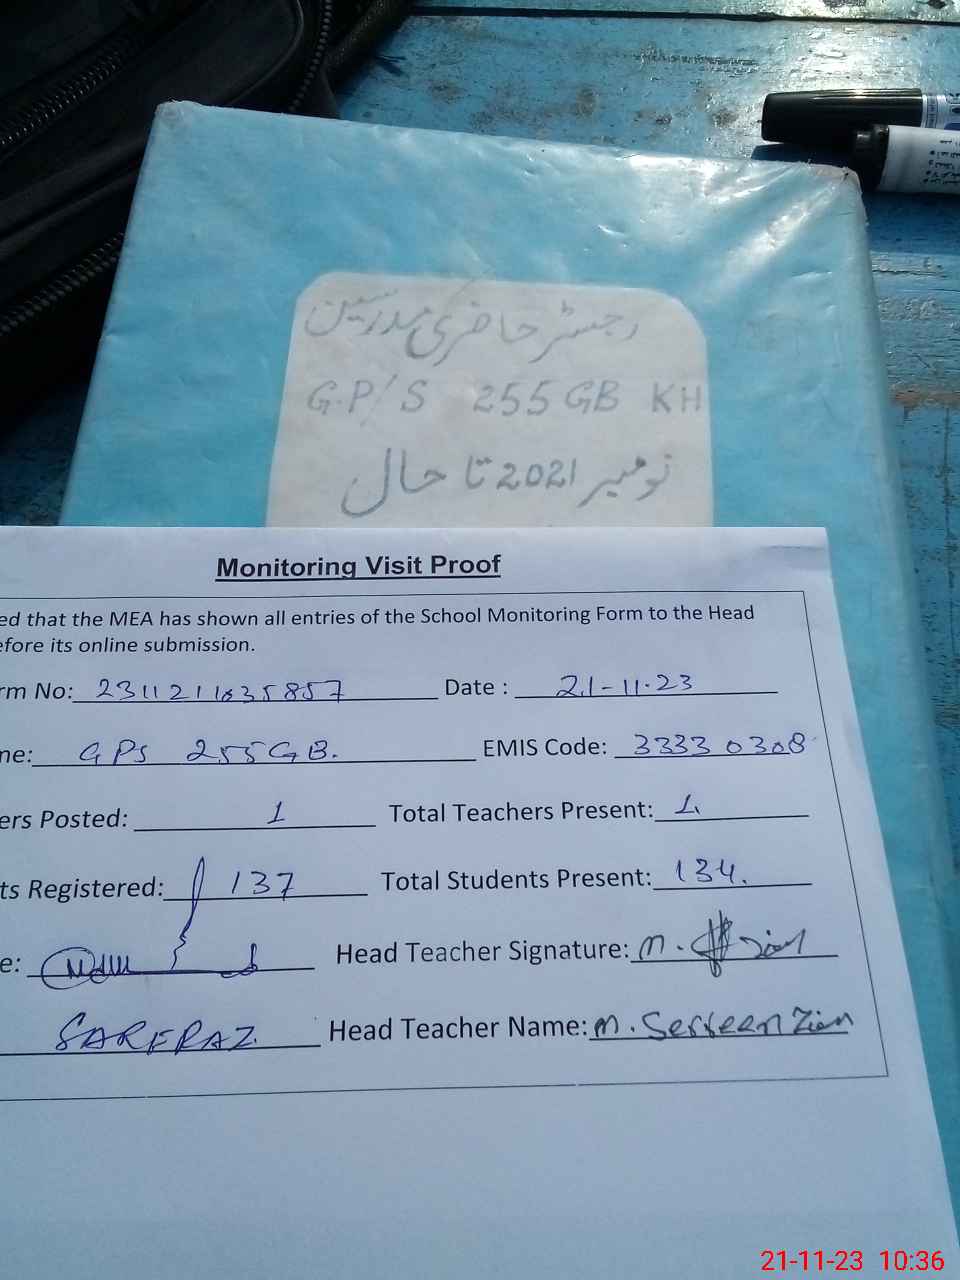 رجسٹر حاضری مدرسین
G.P/S 255 GB KH
نومبر 2021 تا حال
Monitoring Visit Proof
ed that the MEA has shown all entries of the School Monitoring Form to the Head
efore its online submission.
rm No: 231121103585７ Date : 21-11-23
me: GPS 255 GB. EMIS Code: 33330308
ers Posted: 1 Total Teachers Present: 1
ts Registered: 137 Total Students Present: 134.
e: Head Teacher Signature: M.
SARFRAZ Head Teacher Name: M.
21-11-23 10:36